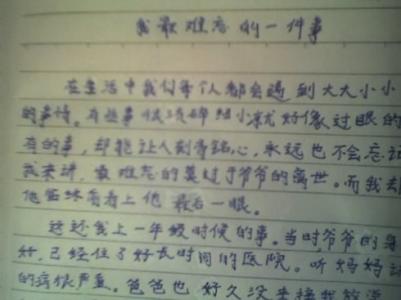 我最难忘的一件事
在生活中我们每个人都会遇到大大小小
的事情。有些事很琐碎细小就好像过眼的
有的事,却能让人刻骨铭心,永远也不会忘记
我来讲,最难忘的莫过于爷爷的离世。而我却
他临终看着上他最后一眼。
这还我上一年级时候的事。当时爷爷的身
好,已经住了好长时间的医院。听妈妈说
的病很严重。爸爸也好久没来接我放